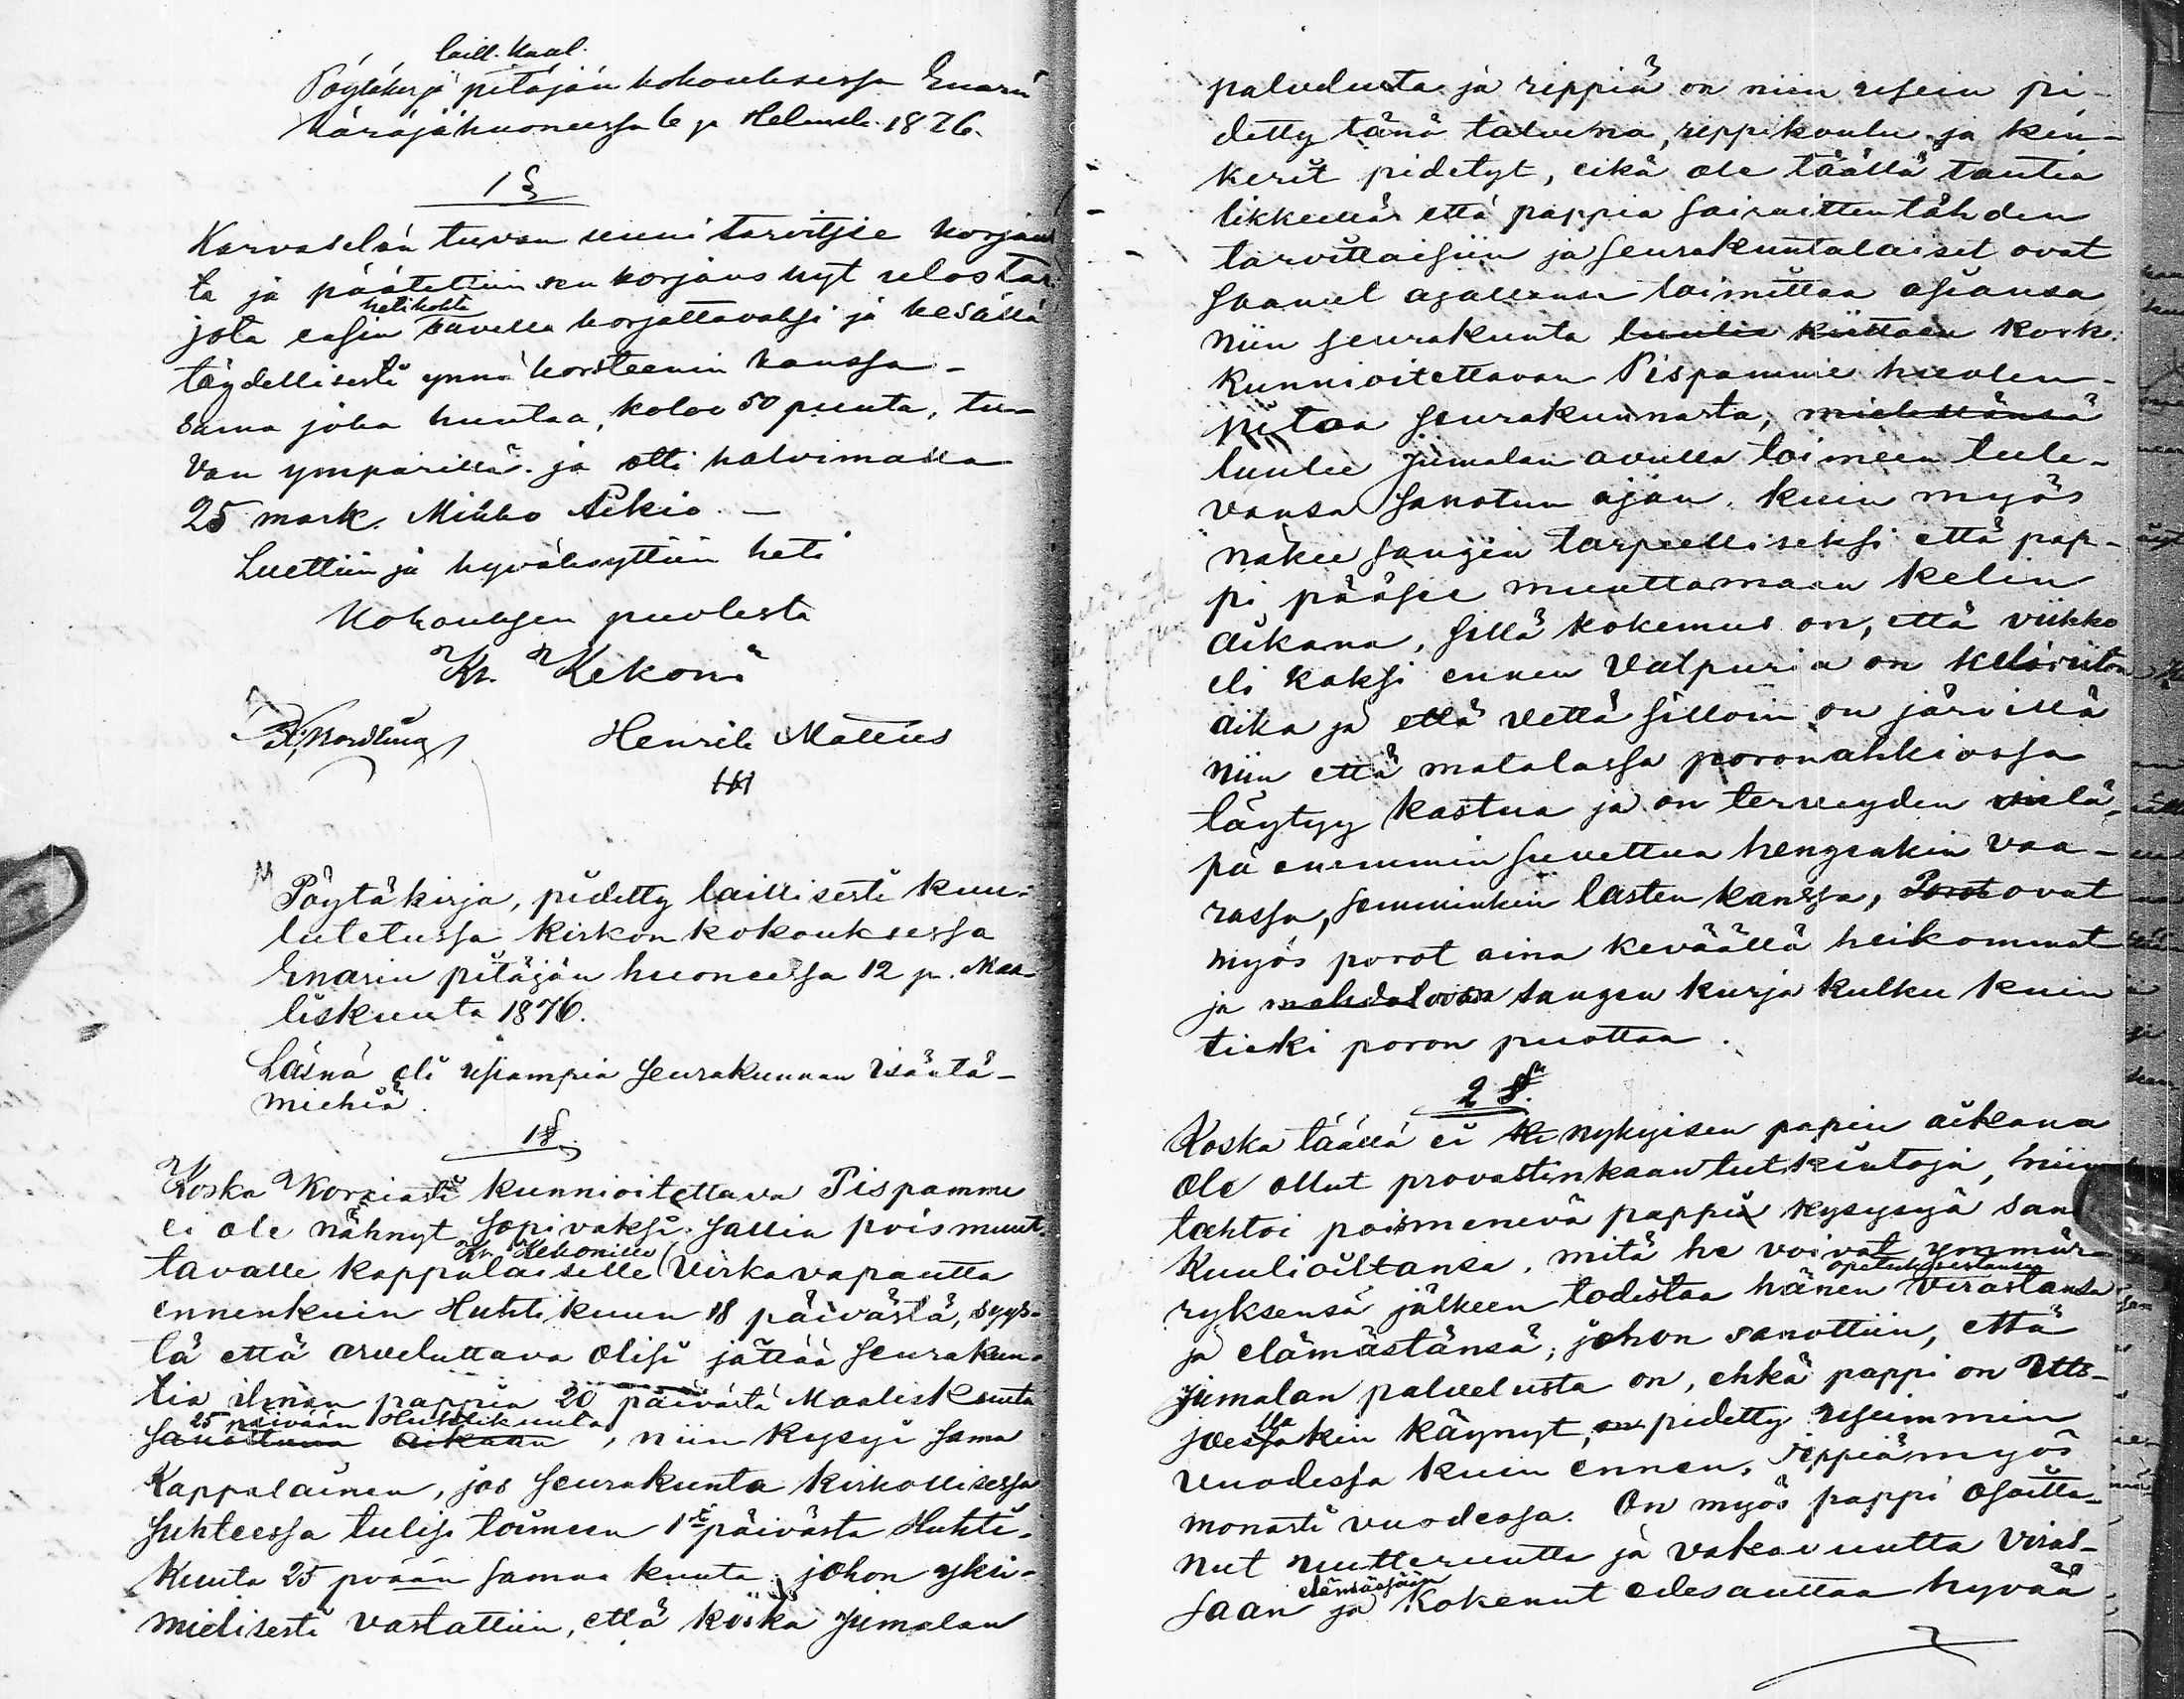 laill. kuul.
Pöytäkirja pitäjän kokouksessa Enarin
käräjähuoneessa 6 p Helmik. 1876.
1 §
Karvaselän tuvan uuni tarvitsee korjaus
ta ja päätettiin sen korjaus nyt ulos tar
hetikohta
jota ensin savella korjattavaksi ja kesällä
täydellisesti ynnä korsteenin kanssa -
sama joka huutaa, koloo 50 puuta, tu-
van ympärillä. ja otti halvimalla
25 mark. Mikko Aikio. -
Luettiin ja hyväksyttiin heti
Kokouksen puolesta
Kr. Kekoni
Nordling Henrik Mattus
Pöytäkirja, pidetty laillisesti kuu-
lutetussa kirkon kokouksessa
Enarin pitäjän huoneessa 12 p. Maa-
liskuuta 1876.
Läsnä oli usiampia seurakunnan isäntä-
miehiä.
1 §.
Koska Korkiasti kunnioitettava Pispamme
ei ole nähnyt sopivaksi sallia poismuut-
Kr. Kekonille
tavalle kappalaiselle virkavapautta
ennenkuin Huhtikuun 18 päivästä, syys-
tä että arveluttava olisi jättää seurakun-
tia ilman pappia 20 päivästä Maaliskuuta
25 päivään Huhtikuuta
sanottuun aikaan, niin kysyi sama
Kappalainen, jos seurakunta kirkollisessa
suhteessa tulisi toimeen 1 päivästä Huhti-
kuuta 25 pvään samaa kuuta, johon yksi-
mielisesti vastattiin, että koska Jumalan
palvelusta ja rippiä on niin usein pi-
detty tänä talvena, rippikoulu ja kin-
kerit pidetyt, eikä ole täällä tautia
likkeellä että pappia sairaitten tähden
tarvittaisiin ja seurakuntalaiset ovat
saanut ajallansa toimittaa asiansa
niin seurakunta luulee kiittaen kork.
kunnioitettavan Pispamme huolen-
pitoa seurakunnasta, mielessänsä
luulee Jumalan avulla toimeen tule-
vansa sanotun ajan. kuin myös
näkee sangen tarpeelliseksi että pap-
pi pääsee muuttamaan kelin
aikana, sillä kokemus on, että viikko
eli kaksi ennen Valpuria on kelirikon
aika ja että vettä silloin on järvillä
niin että matalassa poronahkiossa
täytyy kastua ja on terveyden vielä-
pä enemmin suvettua hengenkin vaa-
rassa, semminkin lasten kanssa, Porot ovat
myös porot aina keväällä heikommat
ja mahdotoin sangen kurja kulku kuin
tieki poron puottaa.
2 §.
Koska täällä ei nykyisen papin aikana
ole ollut provastinkaan tutkintoja, niin
tahtoi poismenevä pappi kysysyä san
kuulioiltansa, mitä he voivat ymmär-
opetuksestansa
ryksensä jälkeen todistaa hänen virastansa
ja elämästänsä, johon sanottiin, että
Jumalan palvelusta on, ehkä pappi on Uts-
joessakin käynyt, on pidetty useimmin
vuodessa kuin ennen, rippiä myös
monasti vuodessa. On myös pappi osoitta-
nut nuutteruutta ja vakavuutta viras-
elämässään
saan ja kokenut edesauttaa hyvää